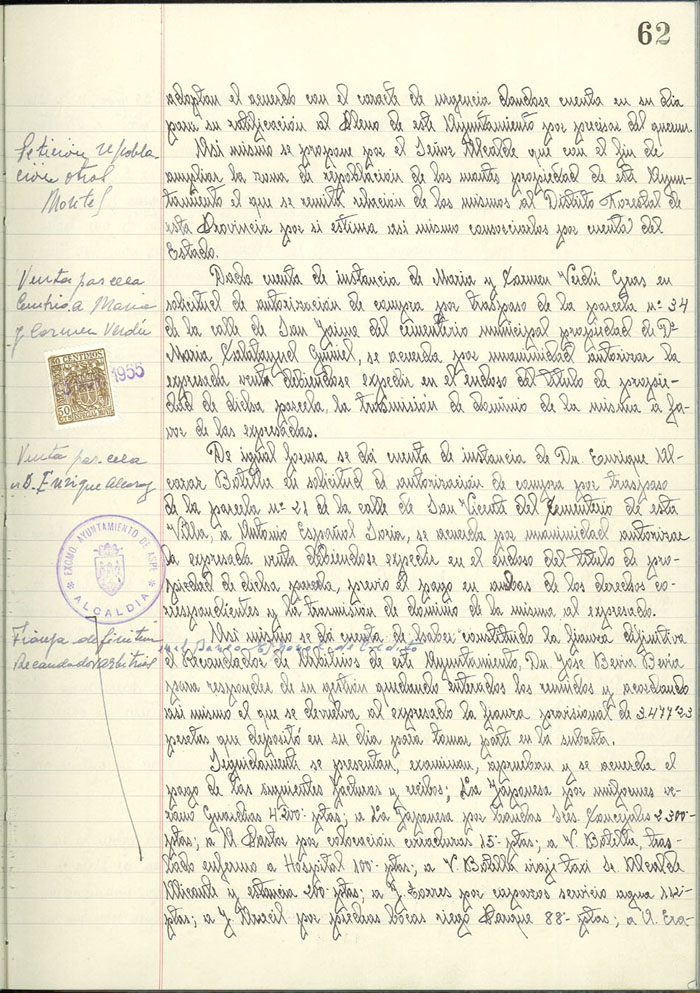 62
adoptan el acuerdo con el caracte de urgencia dandose cuenta en su dia
para su ratificación al Pleno de este Ayuntamiento por precisar del quorum.
Petición repobla-
ción otros
Montes
Asi mismo se propone por el Señor Alcalde que con el fin de
ampliar la zona de repoblación de los montes propiedad de este Ayun-
tamiento el que se remita relación de los mismos al Distrito Forestal de
esta Provincia por si estima asi mismo consorciarlos por cuenta del
Estado.
Venta parcela
Cemtrio. a Maria
y Carmen Verdú
50 CENTIMOS
1955
50
Dada cuenta de instancia de Maria y Carmen Verdú Gras en
solicitud de autorización de compra por traspaso de la parcela nº 34
de la calle de San Jaime del cementerio municipal propiedad de Dª
Maria Calatayud, se acuerda por unanimidad autorizar la
expresada venta debiendose expedir en el endoso del titulo de propie-
dad de dicha parcela, la trasmisión de dominio de la misma a fa-
vor de las expresadas.
Venta parcela
a D. Enrique Alcaraz
De igual forma se dá cuenta de instancia de Dn. Enrique Al-
caraz Botella en solicitud de autorización de compra por traspaso
de la parcela nº 21 de la calle de San Vicente del Cementerio de esta
Villa, a Antonio Español Soria, se acuerda por unanimidad autorizar
la expresada venta debiendose expedir en el endoso del titulo de pro-
piedad de dicha parcela, previo al pago en ambas de los derechos co-
rrespondientes y la trasmisión de dominio de la misma al expresado.
EXCMO. AYUNTAMIENTO DE ASPE
ALCALDIA
Fianza definitiva
Recaudador arbitrios
Asi mismo se dá cuenta de haber constituido la fianza definitiva
en el Banco Español de Credito
el Recaudador de Arbitrios de este Ayuntamiento, Dn. Jose Beviá Beviá
para responder de su gestión quedando enterados los reunidos y acordando
asi mismo el que se devuelva al expresado la fianza provisional de 3.477'23
pesetas que depositó en su dia para tomar parte en la subasta.
Seguidamente se presentan, examinan, aprueban y se acuerda el
pago de las siguientes facturas y recibos; La Japonesa por uniformes ve-
rano Guardias 4200- ptas; a La Japonesa por bandas Sres. Concejales 2300-
ptas; a M. Pastor por colocación cerraduras 15- ptas; a V. Botella, tras-
lado enfermo a Hospital 100- ptas; a V. Botella viaje taxi Sr. Alcalde
Alicante y estancia 200- ptas; a J. Torres por servicio agua
ptas; a J. por piedras bocas riego Parque 88- ptas; a A. Era-